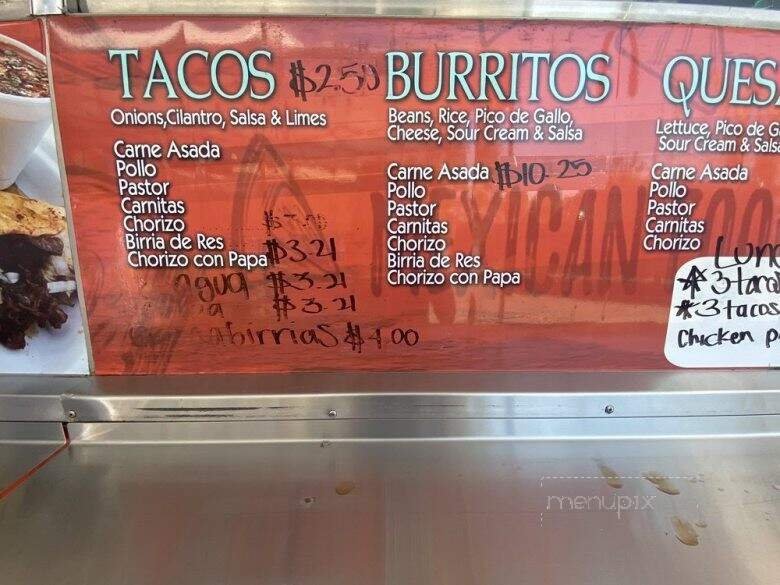 TACOS $2.50
Onions,Cilantro, Salsa & Limes
Carne Asada
Pollo
Pastor
Carnitas
Chorizo
Birria de Res $3.21
Chorizo con Papa
$3.21
$3.21
$4.00
BURRITOS
Beans, Rice, Pico de Gallo,
Cheese, Sour Cream & Salsa
Carne Asada $10.25
Pollo
Pastor
Carnitas
Chorizo
Birria de Res
Chorizo con Papa
MEXICAN
QUES
Lettuce, Pico de G
Sour Cream & Salsa
Carne Asada
Pollo
Pastor
Carnitas
Chorizo
Lunc
3 taca
3 tacos
Chicken p
menupix